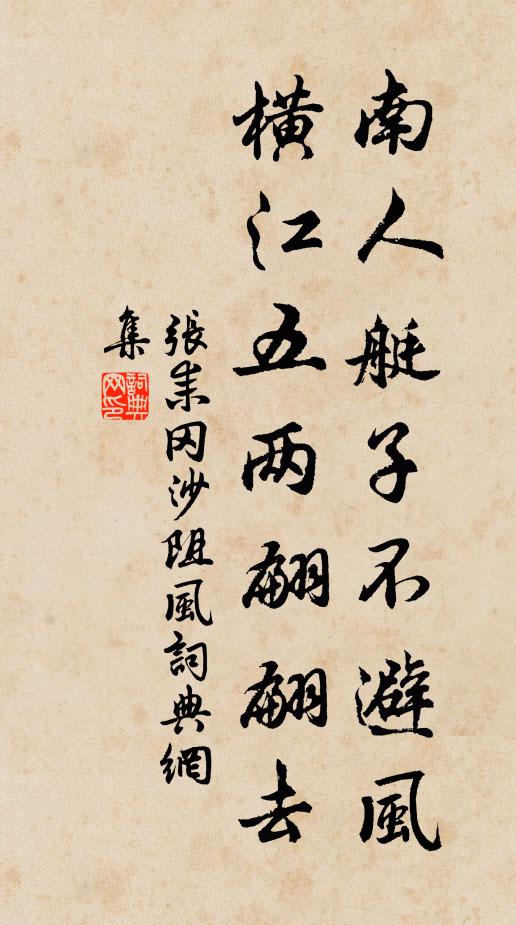 南人艇子不避風
橫江五两翩翩去
張耒罔沙阻風詞典網
集
詞典
网印